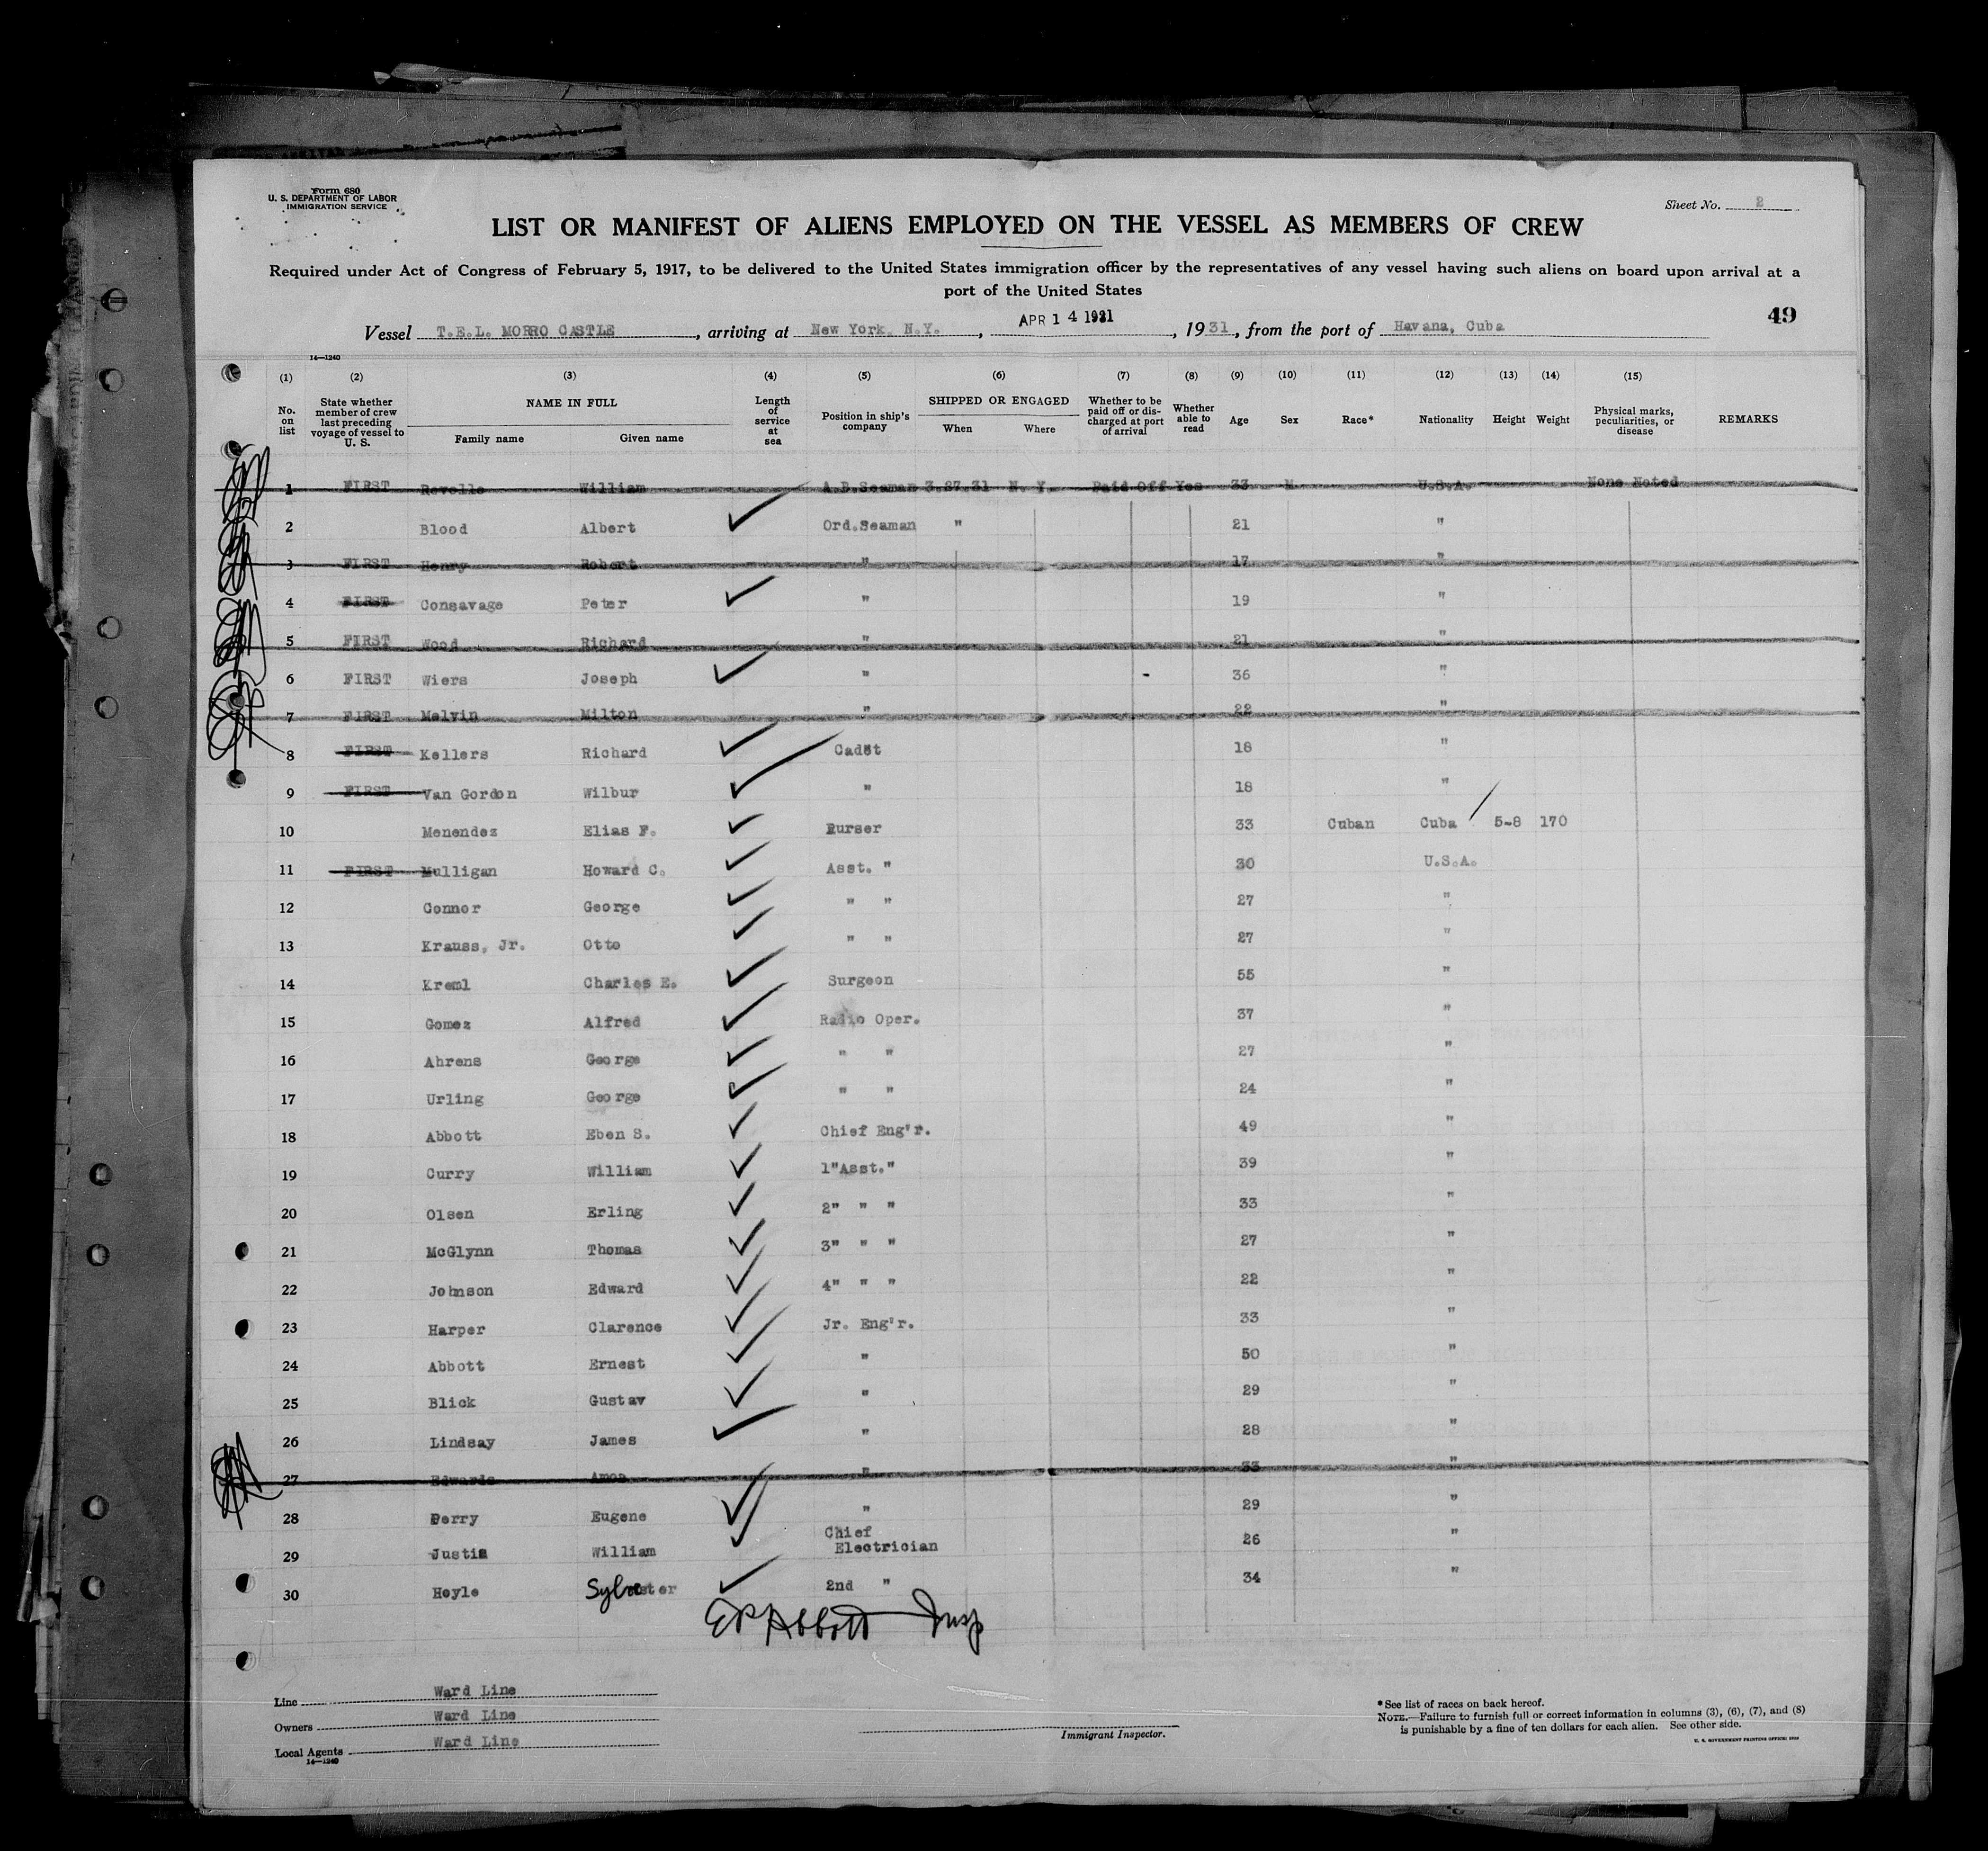 Form 680
U. S. DEPARTMENT OF LABOR
IMMIGRATION SERVICE
Sheet No. 2
LIST OR MANIFEST OF ALIENS EMPLOYED ON THE VESSEL AS MEMBERS OF CREW
Required under Act of Congress of February 5, 1917, to be delivered to the United States immigration officer by the representatives of any vessel having such aliens on board upon arrival at a
port of the United States
49
Vessel T.E.L. MORRO CASTLE, arriving at New York, N.Y., APR 14 1931, 1931, from the port of Havana, Cuba
14—1240
(1) (2) (3) (4) (5) (6) (7) (8) (9) (10) (11) (12) (13) (14) (15)
No. on list State whether member of crew last preceding voyage of vessel to U. S. NAME IN FULL Family name Given name Length of service at sea Position in ship's company SHIPPED OR ENGAGED When Where Whether to be paid off or discharged at port of arrival Whether able to read Age Sex Race* Nationality Height Weight Physical marks, peculiarities, or disease REMARKS
1 FIRST Revelle William A.B.Seaman 3.27.31 N. Y. Paid Off Yes 33 M U.S.A. None Noted
2 Blood Albert Ord.Seaman " 21 "
3 FIRST Henry Robert " 17 "
4 FIRST Consavage Peter " 19 "
5 FIRST Wood Richard " 21 "
6 FIRST Wiers Joseph " - 36 "
7 FIRST Melvin Milton " 22 "
8 FIRST Kellers Richard Cadet 18 "
9 FIRST Van Gordon Wilbur " 18 "
10 Menendez Elias F. Purser 33 Cuban Cuba 5-8 170
11 FIRST Mulligan Howard C. Asst. " 30 U.S.A.
12 Connor George " " 27 "
13 Krauss, Jr. Otto " " 27 "
14 Kreml Charles E. Surgeon 55 "
15 Gomez Alfred Radio Oper. 37 "
16 Ahrens George " " 27 "
17 Urling George " " 24 "
18 Abbott Eben S. Chief Eng'r. 49 "
19 Curry William 1"Asst." 39 "
20 Olsen Erling 2" " " 33 "
21 McGlynn Thomas 3" " " 27 "
22 Johnson Edward 4" " " 22 "
23 Harper Clarence Jr. Eng'r. 33 "
24 Abbott Ernest " 50 "
25 Blick Gustav " 29 "
26 Lindsay James " 28 "
27 Edwards Amos " 33 "
28 Perry Eugene " 29 "
29 Justin William Chief Electrician 26 "
30 Hoyle Sylvester 2nd " 34 "
E P Abbott Insp
Line Ward Line
Owners Ward Line
Local Agents Ward Line
14—1240
Immigrant Inspector.
*See list of races on back hereof.
NOTE.—Failure to furnish full or correct information in columns (3), (6), (7), and (8)
is punishable by a fine of ten dollars for each alien. See other side.
U. S. GOVERNMENT PRINTING OFFICE